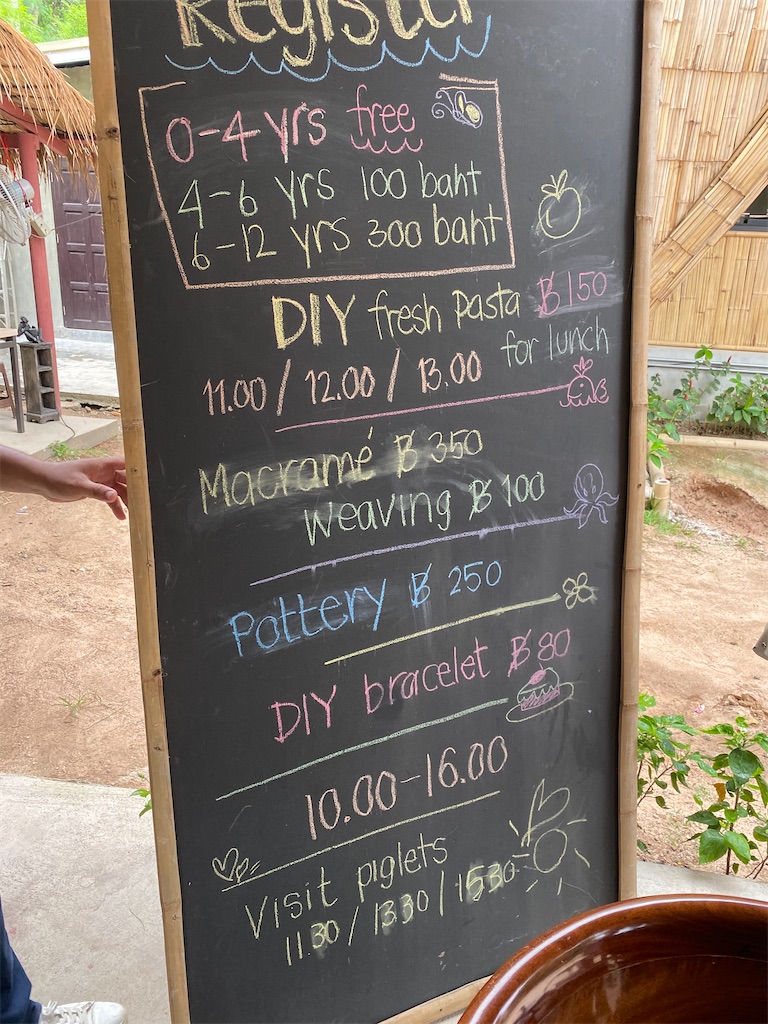 Register
0-4 yrs free
4-6 yrs 100 baht
6-12 yrs 300 baht
DIY fresh pasta ฿150
for lunch
11.00 / 12.00 / 13.00
Macramé ฿ 350
Weaving ฿ 100
Pottery ฿ 250
DIY bracelet ฿ 80
10.00-16.00
Visit piglets
11.30 / 13.30 / 15.30